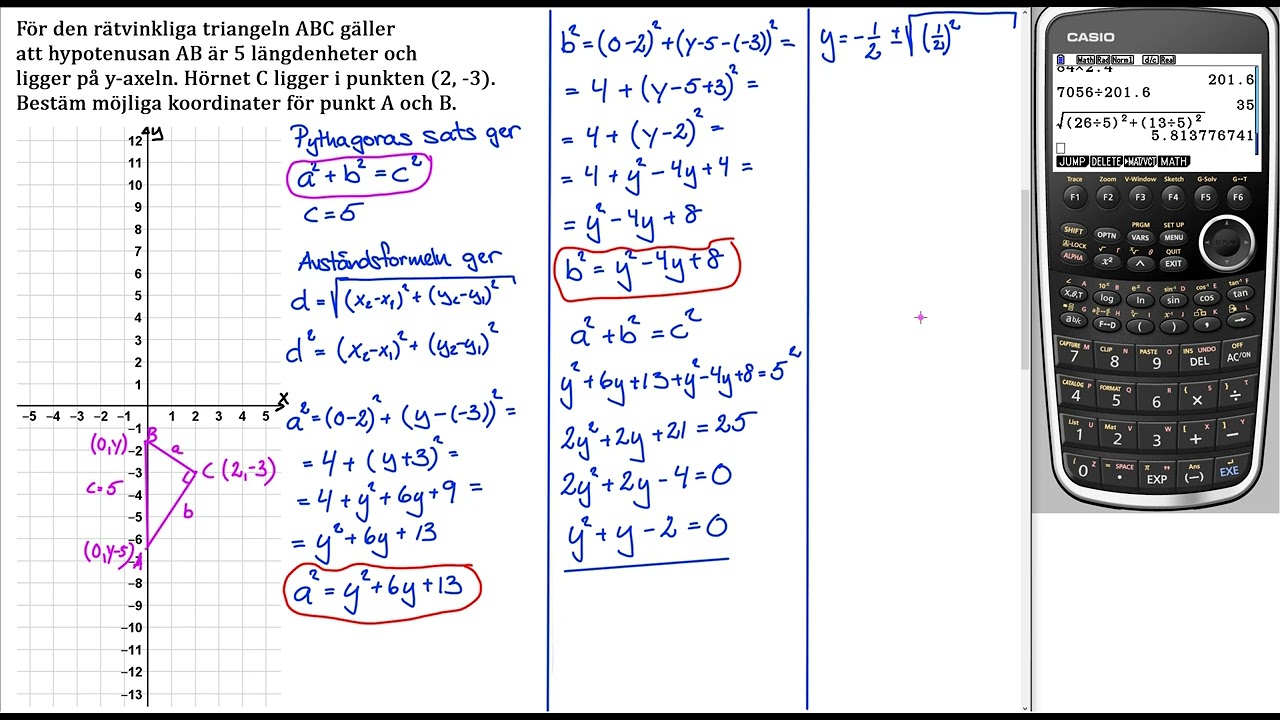 För den rätvinkliga triangeln ABC gäller
att hypotenusan AB är 5 längdenheter och
ligger på y-axeln. Hörnet C ligger i punkten (2, -3).
Bestäm möjliga koordinater för punkt A och B.
y
12
11
10
9
8
7
6
5
4
3
2
1
x
−5 −4 −3 −2 −1 1 2 3 4 5
−1
−2
−3
−4
−5
−6
−7
−8
−9
−10
−11
−12
−13
(0,y) B
a
C (2,-3)
c=5
b
(0,y-5) A
Pythagoras sats ger
a² + b² = c²
c = 5
Avståndsformeln ger
d = √((x₂-x₁)² + (y₂-y₁)²)
d² = (x₂-x₁)² + (y₂-y₁)²
a² = (0-2)² + (y-(-3))² =
= 4 + (y+3)² =
= 4 + y² + 6y + 9 =
= y² + 6y + 13
a² = y² + 6y + 13
b² = (0-2)² + (y-5-(-3))² =
= 4 + (y-5+3)² =
= 4 + (y-2)² =
= 4 + y² - 4y + 4 =
= y² - 4y + 8
b² = y² - 4y + 8
a² + b² = c²
y² + 6y + 13 + y² - 4y + 8 = 5²
2y² + 2y + 21 = 25
2y² + 2y - 4 = 0
y² + y - 2 = 0
y = -1/2 ± √((1/2)²
CASIO
Math Rad Norm1 d/c Real
84×2.4
201.6
7056÷201.6
35
√((26÷5)²+(13÷5)²)
5.813776741
JUMP DELETE ▶MAT/VCT MATH
Trace Zoom V-Window Sketch G-Solv G↔T
F1 F2 F3 F4 F5 F6
SHIFT OPTN PRGM VARS SET UP MENU
A-LOCK ALPHA x² ^ QUIT EXIT
X,θ,T log ln sin cos tan
a b/c F↔D ( ) , →
CAPTURE M CLIP N PASTE O INS UNDO OFF
7 8 9 DEL AC/ON
CATALOG P FORMAT Q R { S } T
4 5 6 × ÷
List U Mat V W [ X ] Y
1 2 3 + −
i Z = SPACE π " Ans
0 . EXP (−) EXE